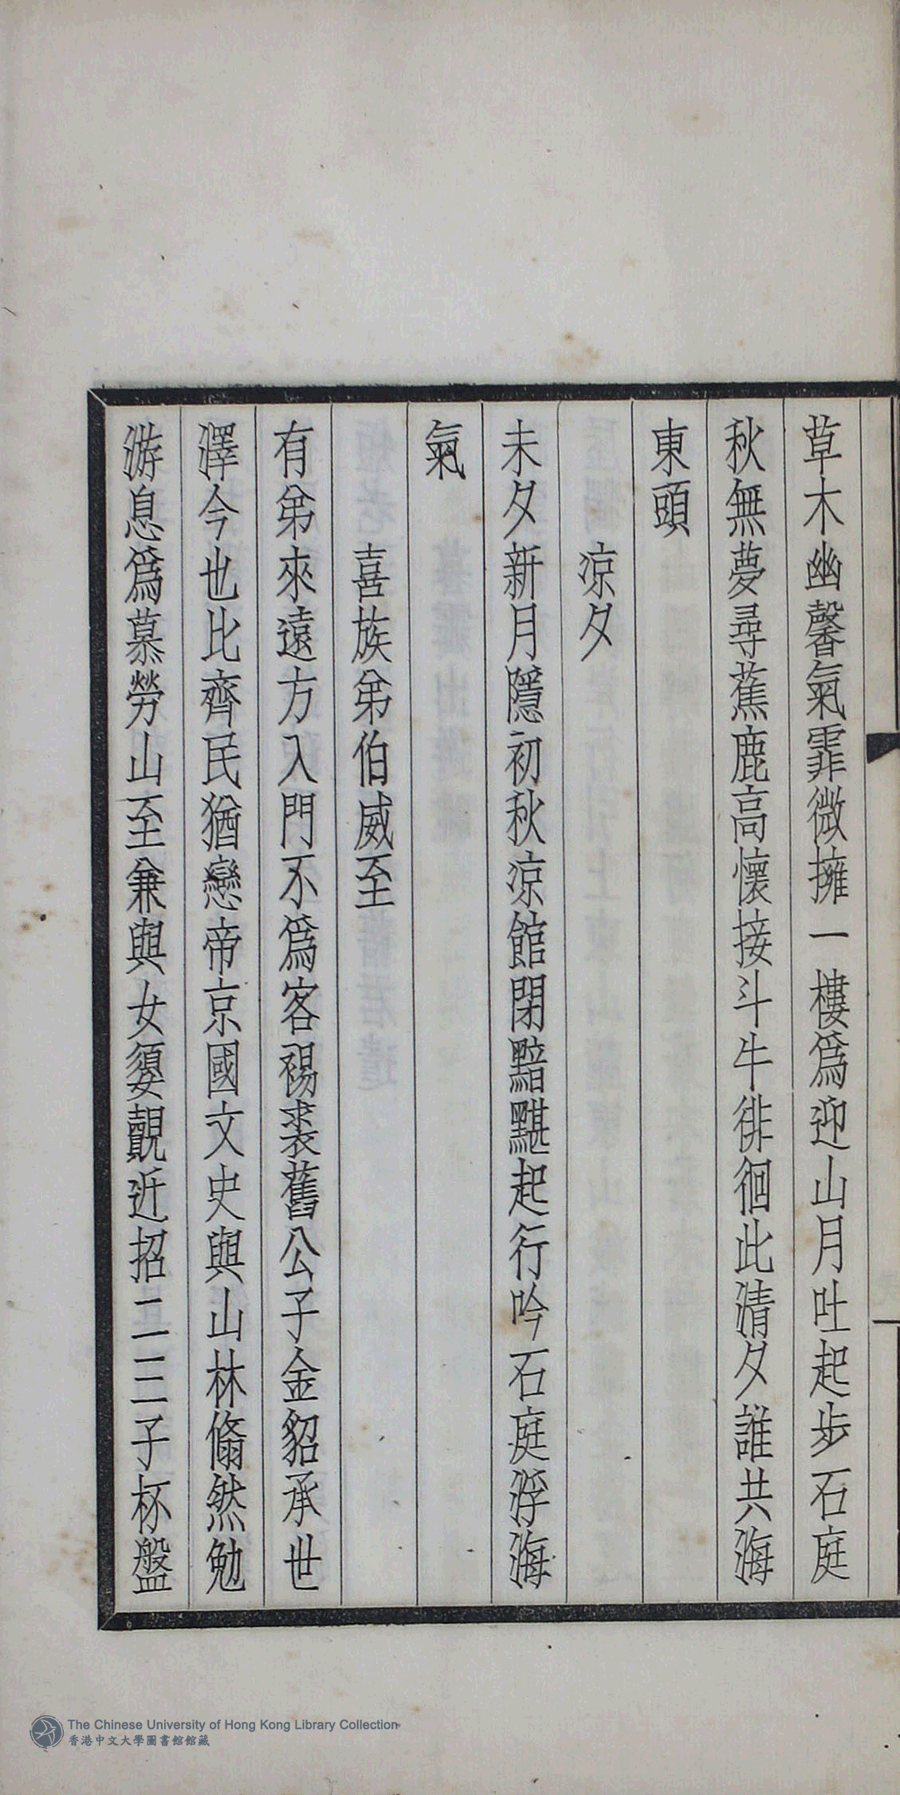 草木幽馨氣霏微擁一樓爲迎山月吐起步石庭
秋無夢尋蕉鹿高懷接斗牛徘徊此清夕誰共海
東頭
涼夕
未夕新月隱初秋涼館閉黯黮起行吟石庭浮海
氣
喜族弟伯威至
有弟來遠方入門不爲客裼裘舊公子金貂承世
澤今也比齊民猶戀帝京國文史與山林翛然勉
游息爲慕勞山至兼與女嬃覿近招二三子杯盤
The Chinese University of Hong Kong Library Collection
香港中文大學圖書館館藏